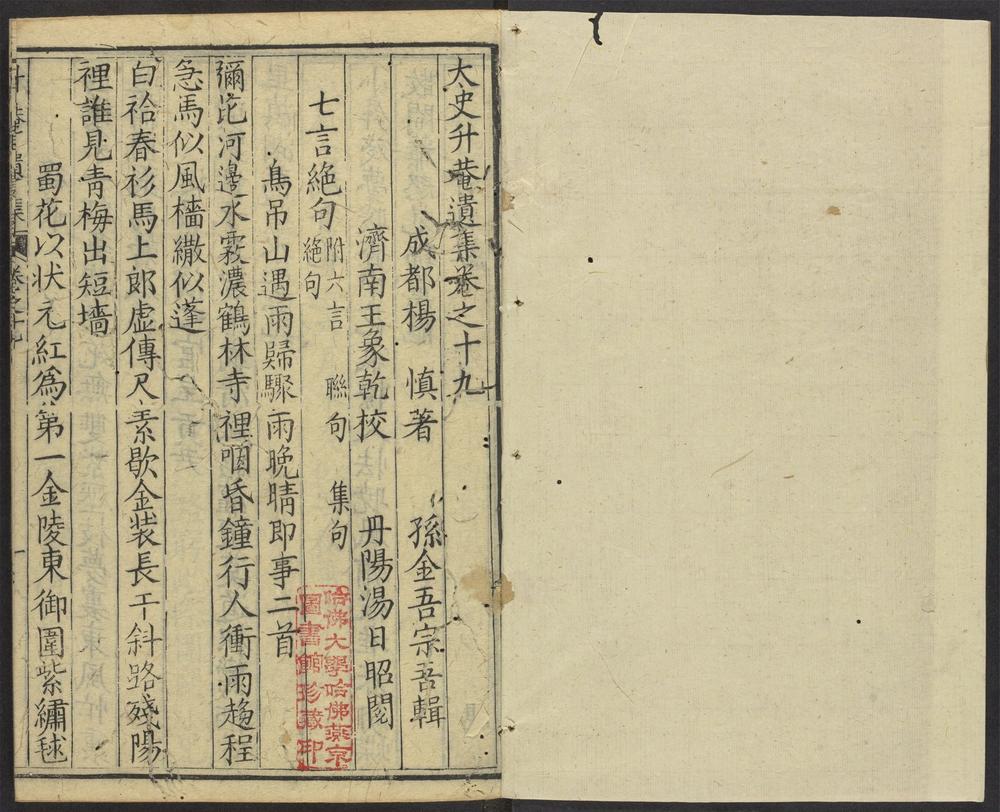 太史升菴遺集卷之十九
成都楊慎著 孫金吾宗吾輯
濟南王象乾校 丹陽湯日昭閱
七言絕句 附六言絕句 聯句 集句
鳥吊山遇雨歸驟雨晚晴即事二首
彌苴河邊水霧濃鶴林寺裡咽昏鐘行人衝雨趨程
急馬似風檣繖似蓬
白袷春衫馬上郎虛傳尺素歇金装長干斜路殘陽
裡誰見青梅出短墻
蜀花以狀元紅為第一金陵東御園紫繡毬
升菴遺集 卷之十九 一
哈佛大學哈佛燕京
圖書館珍藏印